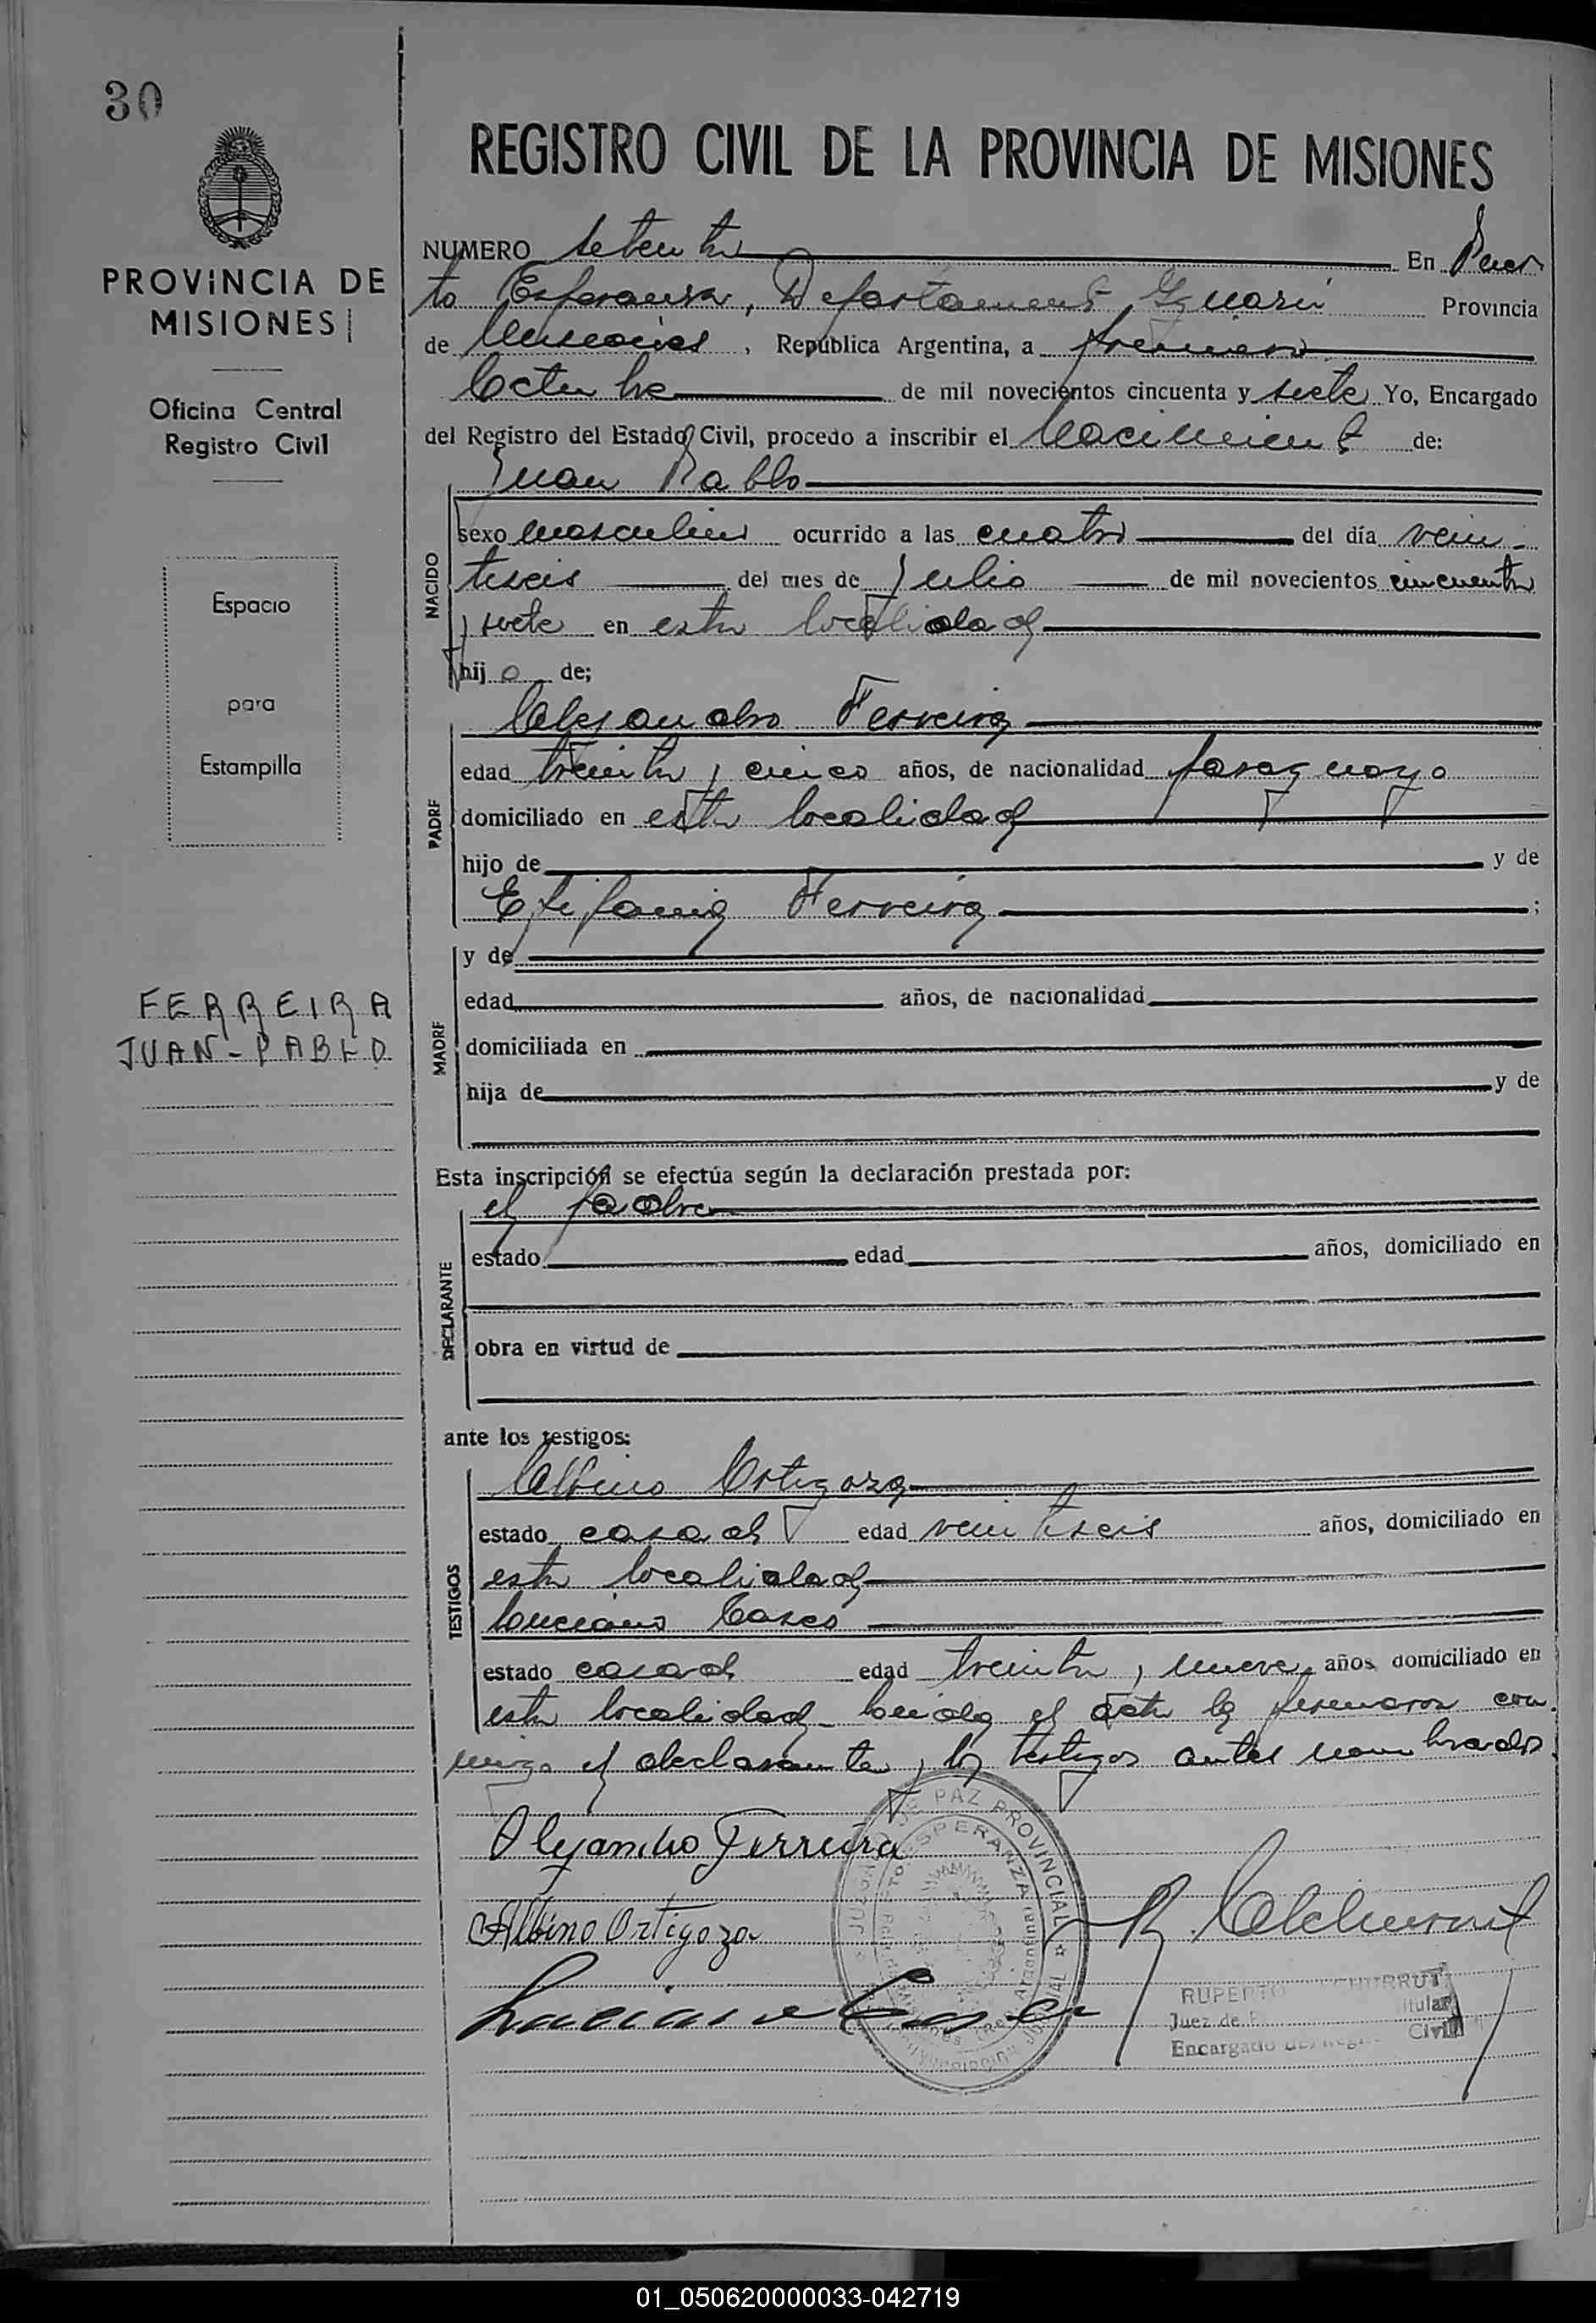 30
PROVINCIA DE
MISIONES
Oficina Central
Registro Civil
Espacio
para
Estampilla
FERREIRA
JUAN-PABLO
REGISTRO CIVIL DE LA PROVINCIA DE MISIONES
NUMERO setenta En Puer
to Esperanza, Departamento Iguazú Provincia
de Misiones, República Argentina, a primero
Octubre de mil novecientos cincuenta y siete Yo, Encargado
del Registro del Estado Civil, procedo a inscribir el Nacimiento de:
Juan Pablo
NACIDO
sexo masculino ocurrido a las cuatro del día vein-
tiseis del mes de Julio de mil novecientos cincuenta
y siete en esta localidad
hijo de;
PADRE
Alejandro Ferreira
edad treinta y cinco años, de nacionalidad paraguayo
domiciliado en esta localidad
hijo de y de
Epifania Ferreira ;
MADRE
y de
edad años, de nacionalidad
domiciliada en
hija de y de
Esta inscripción se efectúa según la declaración prestada por:
DECLARANTE
el padre
estado edad años, domiciliado en
obra en virtud de
ante los testigos:
TESTIGOS
Albino Ortigoza
estado casado edad veintiseis años, domiciliado en
esta localidad
Luciano Casco
estado casado edad treinta y nueve años domiciliado en
esta localidad- Leida el acta la firmaron con
migo el declarante y los testigos antes nombrados.
Alejandro Ferreira
Albino Ortigoza
Luciano Casco
JUZGADO DE PAZ PROVINCIAL
PTO. ESPERANZA
RUPERTO
Juez de P Titular
Encargado del Reg Civil
01_050620000033-042719